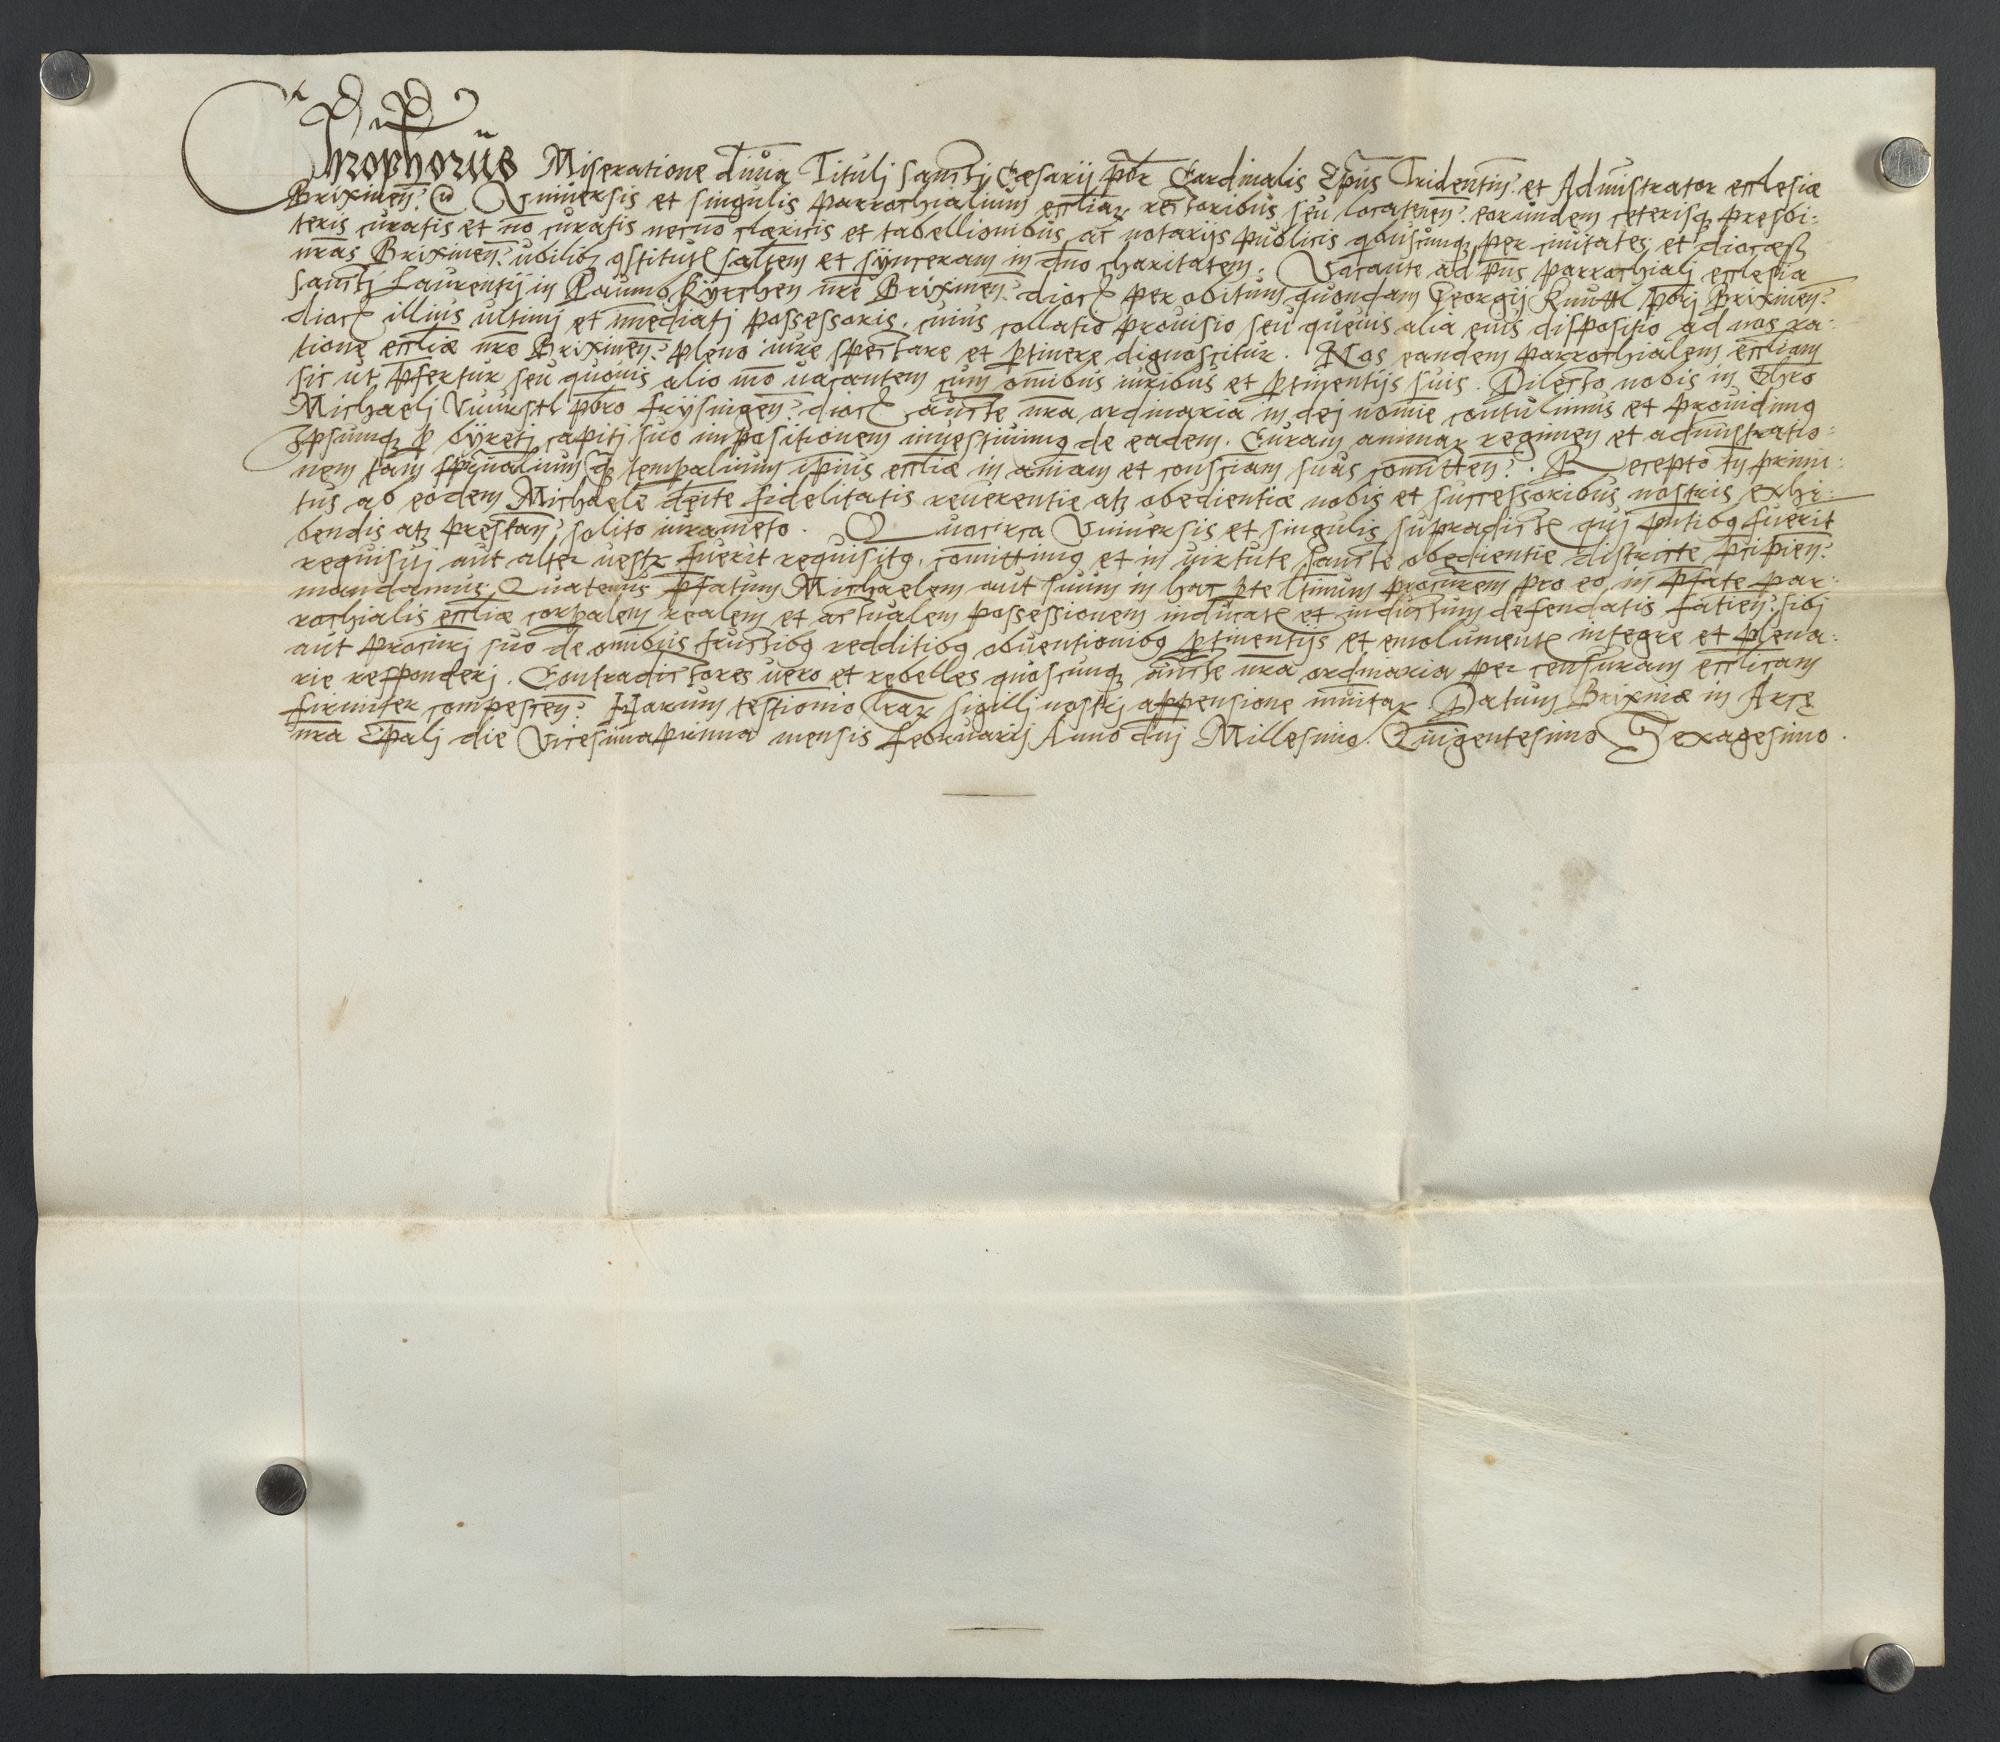 Chrõphorus Miseratione diuia Titulj Sanctj Cesarij pbr Cardinalis Epus Tridentin. et Administrator ecclesiæ
Brixinen. Vniuersis et singulis parrochialium eccliaꝝ rectoribus seu locatenen. eorundem ceterisqꝫ presbi:
teris curatis et nõ curatis necnõ clæricis et tabellionibus ac notarijs publicis qbuscunqꝫ per ciuitates et diocæs
nras Brixinen. ubilibꝫ ꝯstitut saltem et synceram in dno charitatem. Vacante ad pns parrochialj ecclesia
Sanctj Laurentij in Paumb Kyrchen nre Brixinen. dioc per obitum quondam Georgij pbrj Brixinen.
dioc illius ultimj et imediatj possessoris, cuius collatio prouisio seu queuis alia eius dispositio ad nos ra:
tione eccliæ nre Brixinen. pleno iure spectare et ptinere dignoscitur. Nos eandem parrochialem eccliam
sic ut pfertur seu quouis alio mõ uacantem cum omibus iuribus et ptinentijs suis. Dilecto nobis in Chro
Michaelj Vuurstl pbro Frijsingen. dioc aucte nra ordinaria in dej nomie contulimus et prouidimꝰ
Ipsumqꝫ p byretj capitj suo impositionem inuestiuimꝰ de eadem. Curam animaꝝ regimen et administratio:
nem tam spiualium qꝫ tempalium ipius eccliæ in aniam et consciam suas comitten. Recepto tn primi:
tus ab eodem Michaele dcte fidelitatis reuerentie atqꝫ obedientiæ nobis et successoribus nostris exhi:
bendis atqꝫ prestan. solito iurameto. Quocirca Vniuersis et singulis supradict quj pntibꝰ fuerit
requisitj aut alter uestr fuerit requisitꝰ, comittimꝰ et in uirtute sancte obedientie districte pcipien.
mandamus, Quatenus pfatum Michaelem aut suum in hac pte ltimum procurem pro eo in pfate par:
rochialis eccliæ corpalem realem et actualem possessionem inducatꝭ et inductum defendatis fatien. sibj
aut procurj suo de omibus fructibꝰ redditibꝰ obuentionibꝰ ptinentijs et emolument integre et plena:
rie responderj. Contradictores uero et rebelles quoscunqꝫ aucte nra ordinaria per censuram ecclicam
firmiter compescen. Harum testimonio lraꝝ sigillj nostrj appensione munitaꝝ Datum Brixinæ in Arce
nra Epalj die Vicesimaprima mensis Februarij Anno dnj Millesimo. Quingentesimo Sexagesimo.